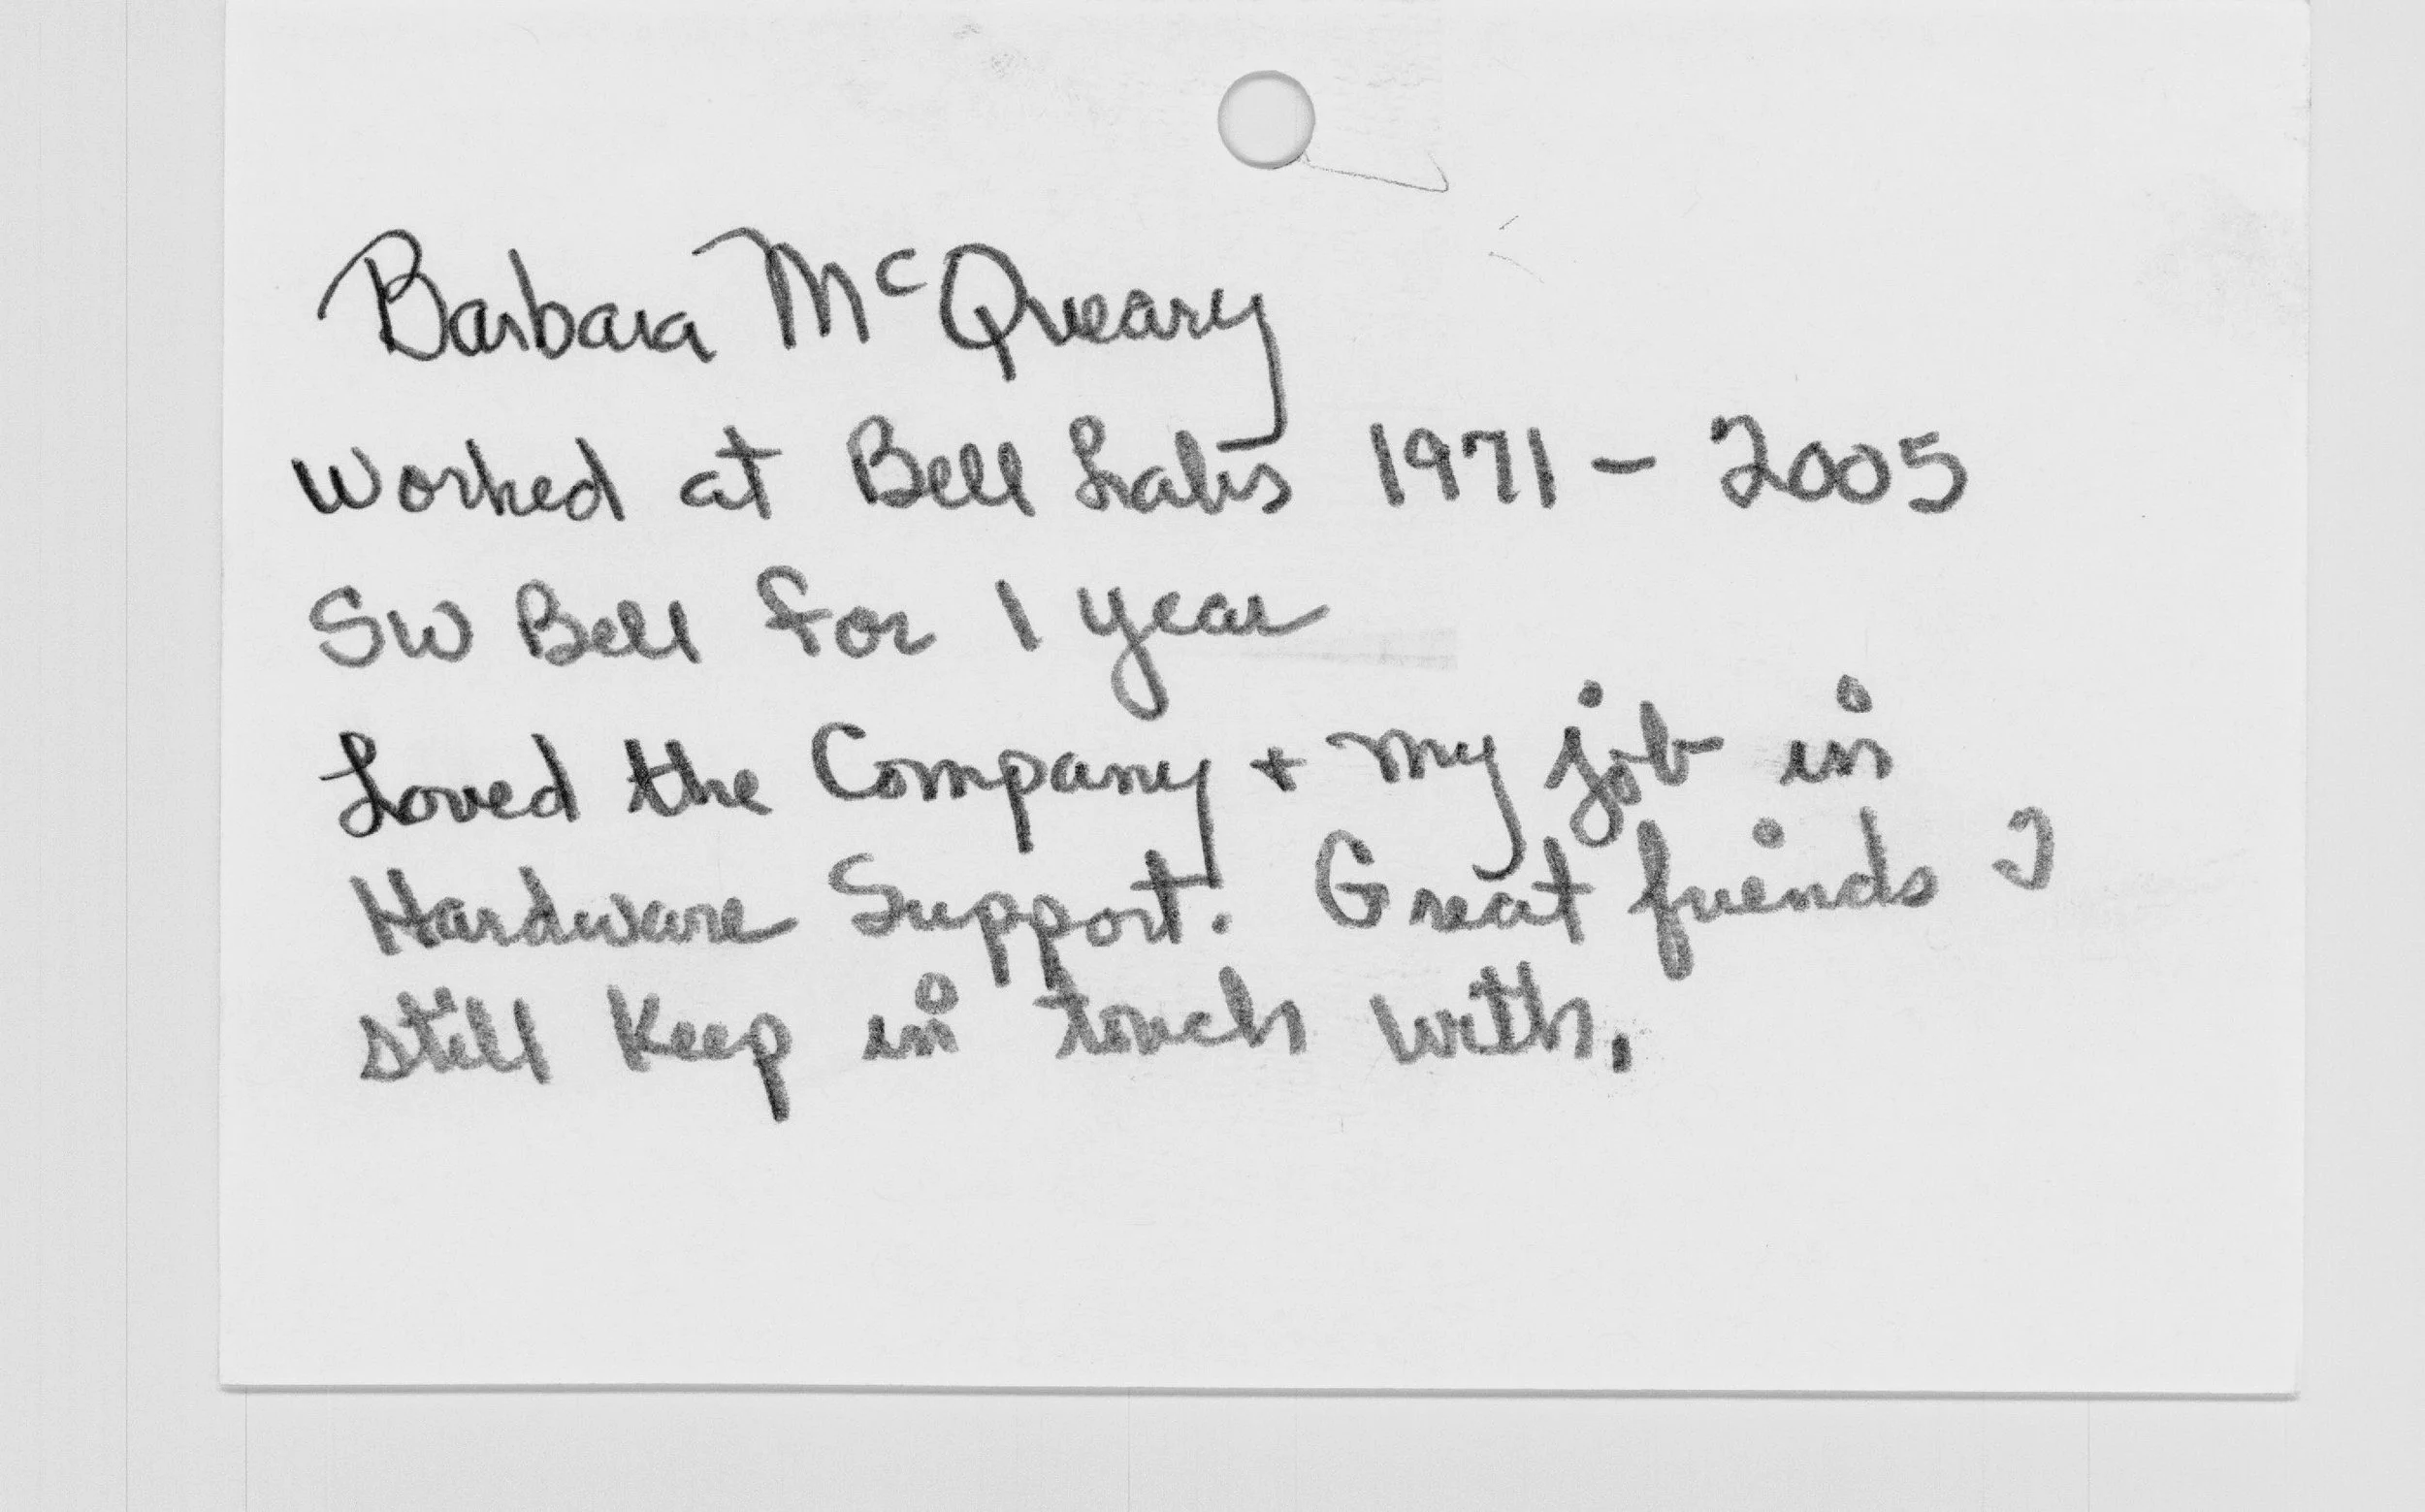 Barbara McQueary
Worked at Bell Labs 1971 - 2005
SW Bell for 1 year
Loved the Company + my job in
Hardware Support. Great friends I
still keep in touch with.